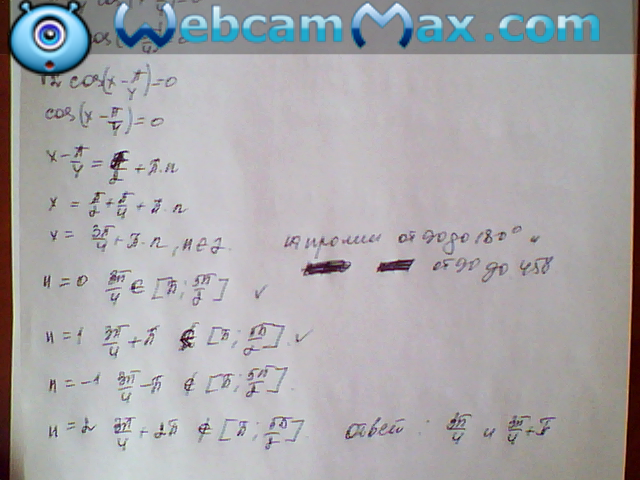 WebcamMax.com
√2 cos(x-π/4)=0
cos(x-π/4)=0
x-π/4 = π/2 + π·n
x = π/2 + π/4 + π·n
x = 3π/4 + π·n, n∈z.
от 90 до 180°
от 90 до 450
n=0 3π/4 ∈ [π; 5π/2] ✓
n=1 3π/4+π [π; 5π/2]. ✓
n=-1 3π/4-π ∉ [π; 5π/2].
n=2 3π/4+2π ∉ [π; 5π/2]. ответ: 3π/4 и 3π/4+π